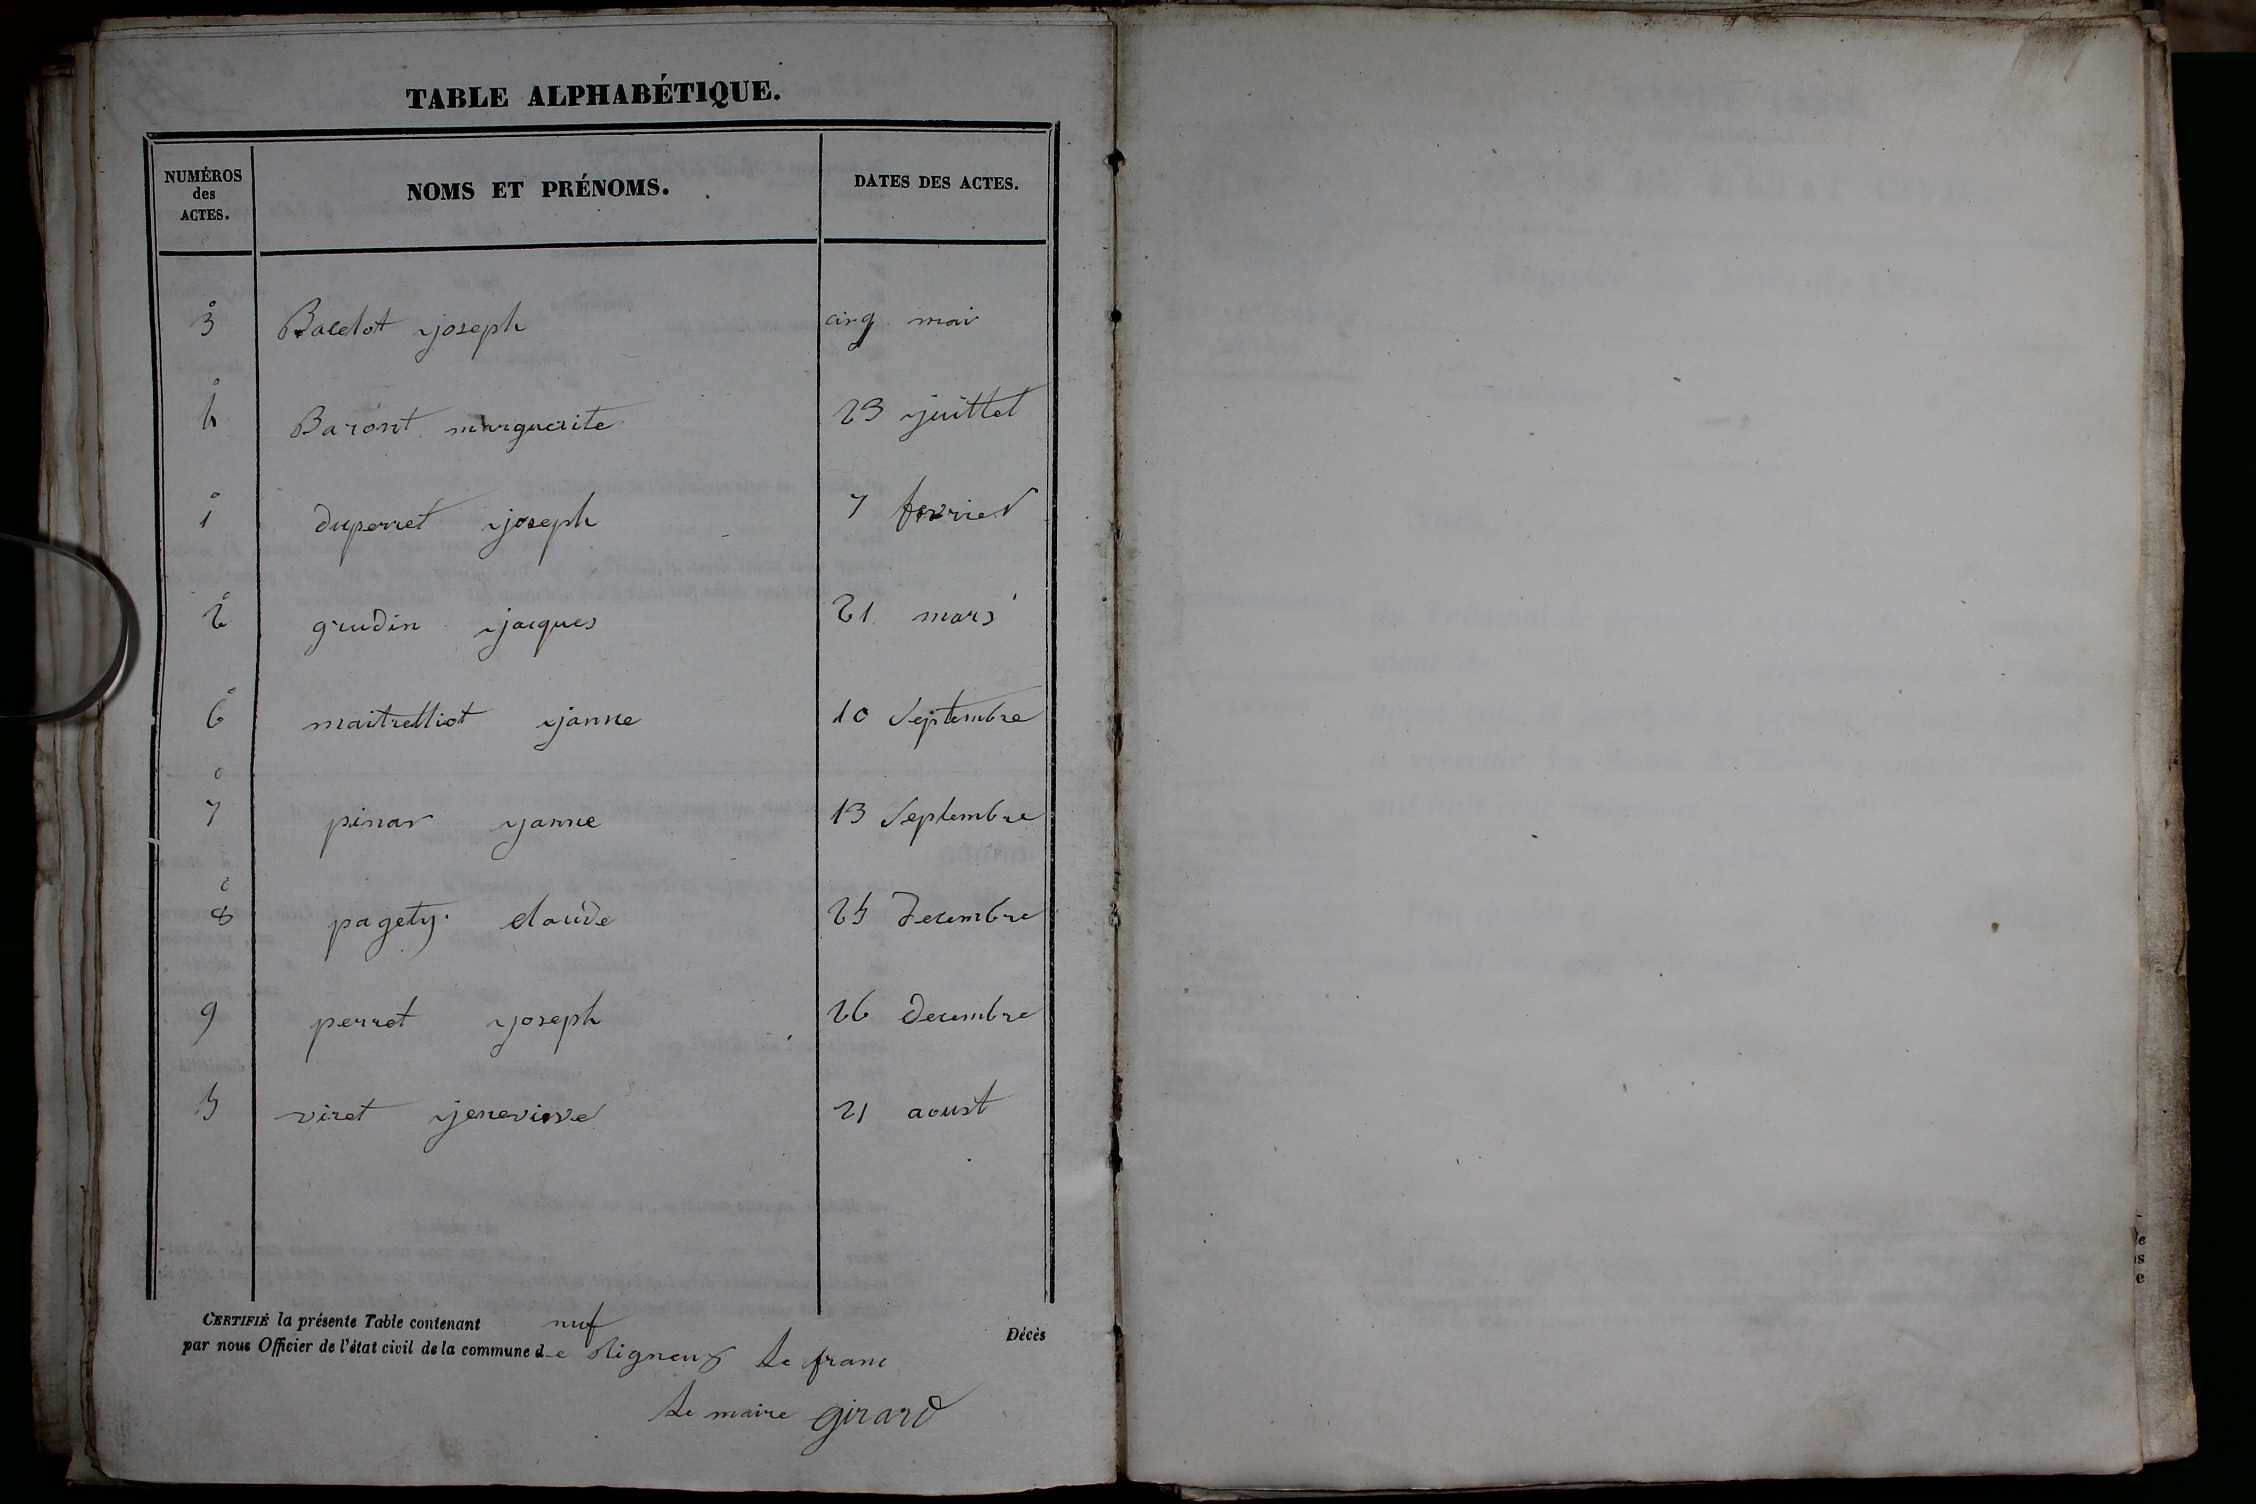 TABLE ALPHABÉTIQUE.
NUMÉROS des ACTES. NOMS ET PRÉNOMS. DATES DES ACTES.
3 Bacelot joseph cinq mai
4 Baront marguerite 23 juillet
1 duperret joseph 7 fevrier
2 grudin jacques 21 mars
6 maitrelliot janne 10 Septembre
7 pinar janne 13 Septembre
8 pagety claude 25 decembre
9 perret joseph 26 decembre
5 viret jenevieve 21 aoust
CERTIFIÉ la présente Table contenant nuf Décès
par nous Officier de l'état civil de la commune de Ligneux le franc
Le maire girard